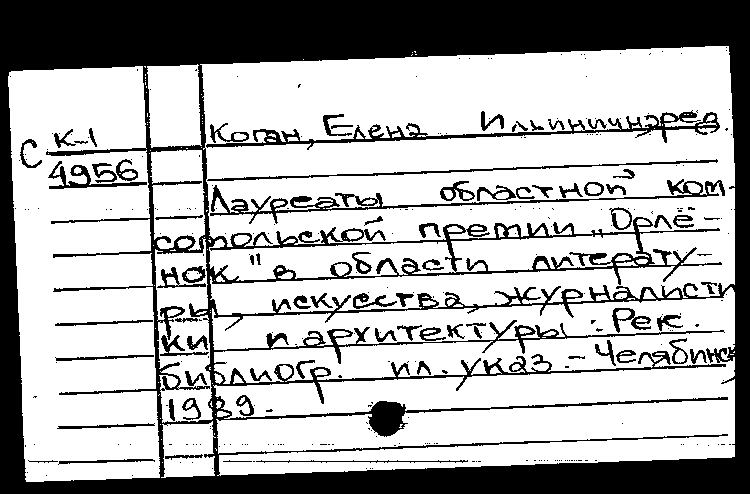 С К-1
4956
Коган, Елена Ильинична, ред.
Лауреаты областной ком-
сомольской премии „Орлё-
нок" в области литерату-
ры, искусства, журналисти
ки и архитектуры: Рек.
библиогр. ил. указ. - Челябинск
1989.